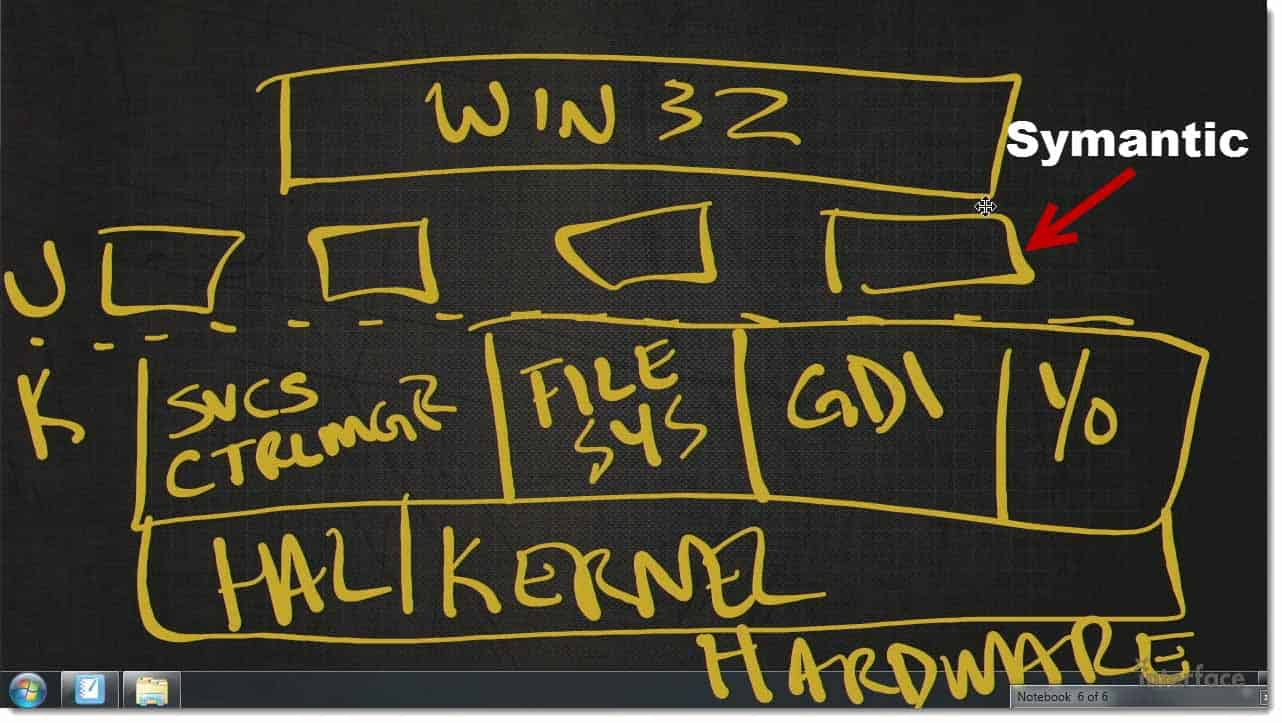 WIN 32
Symantic
U
K
SVCS
CTRLMGR
FILE
SYS
GDI
I/O
HAL
KERNEL
HARDWARE
interface
Notebook 6 of 6